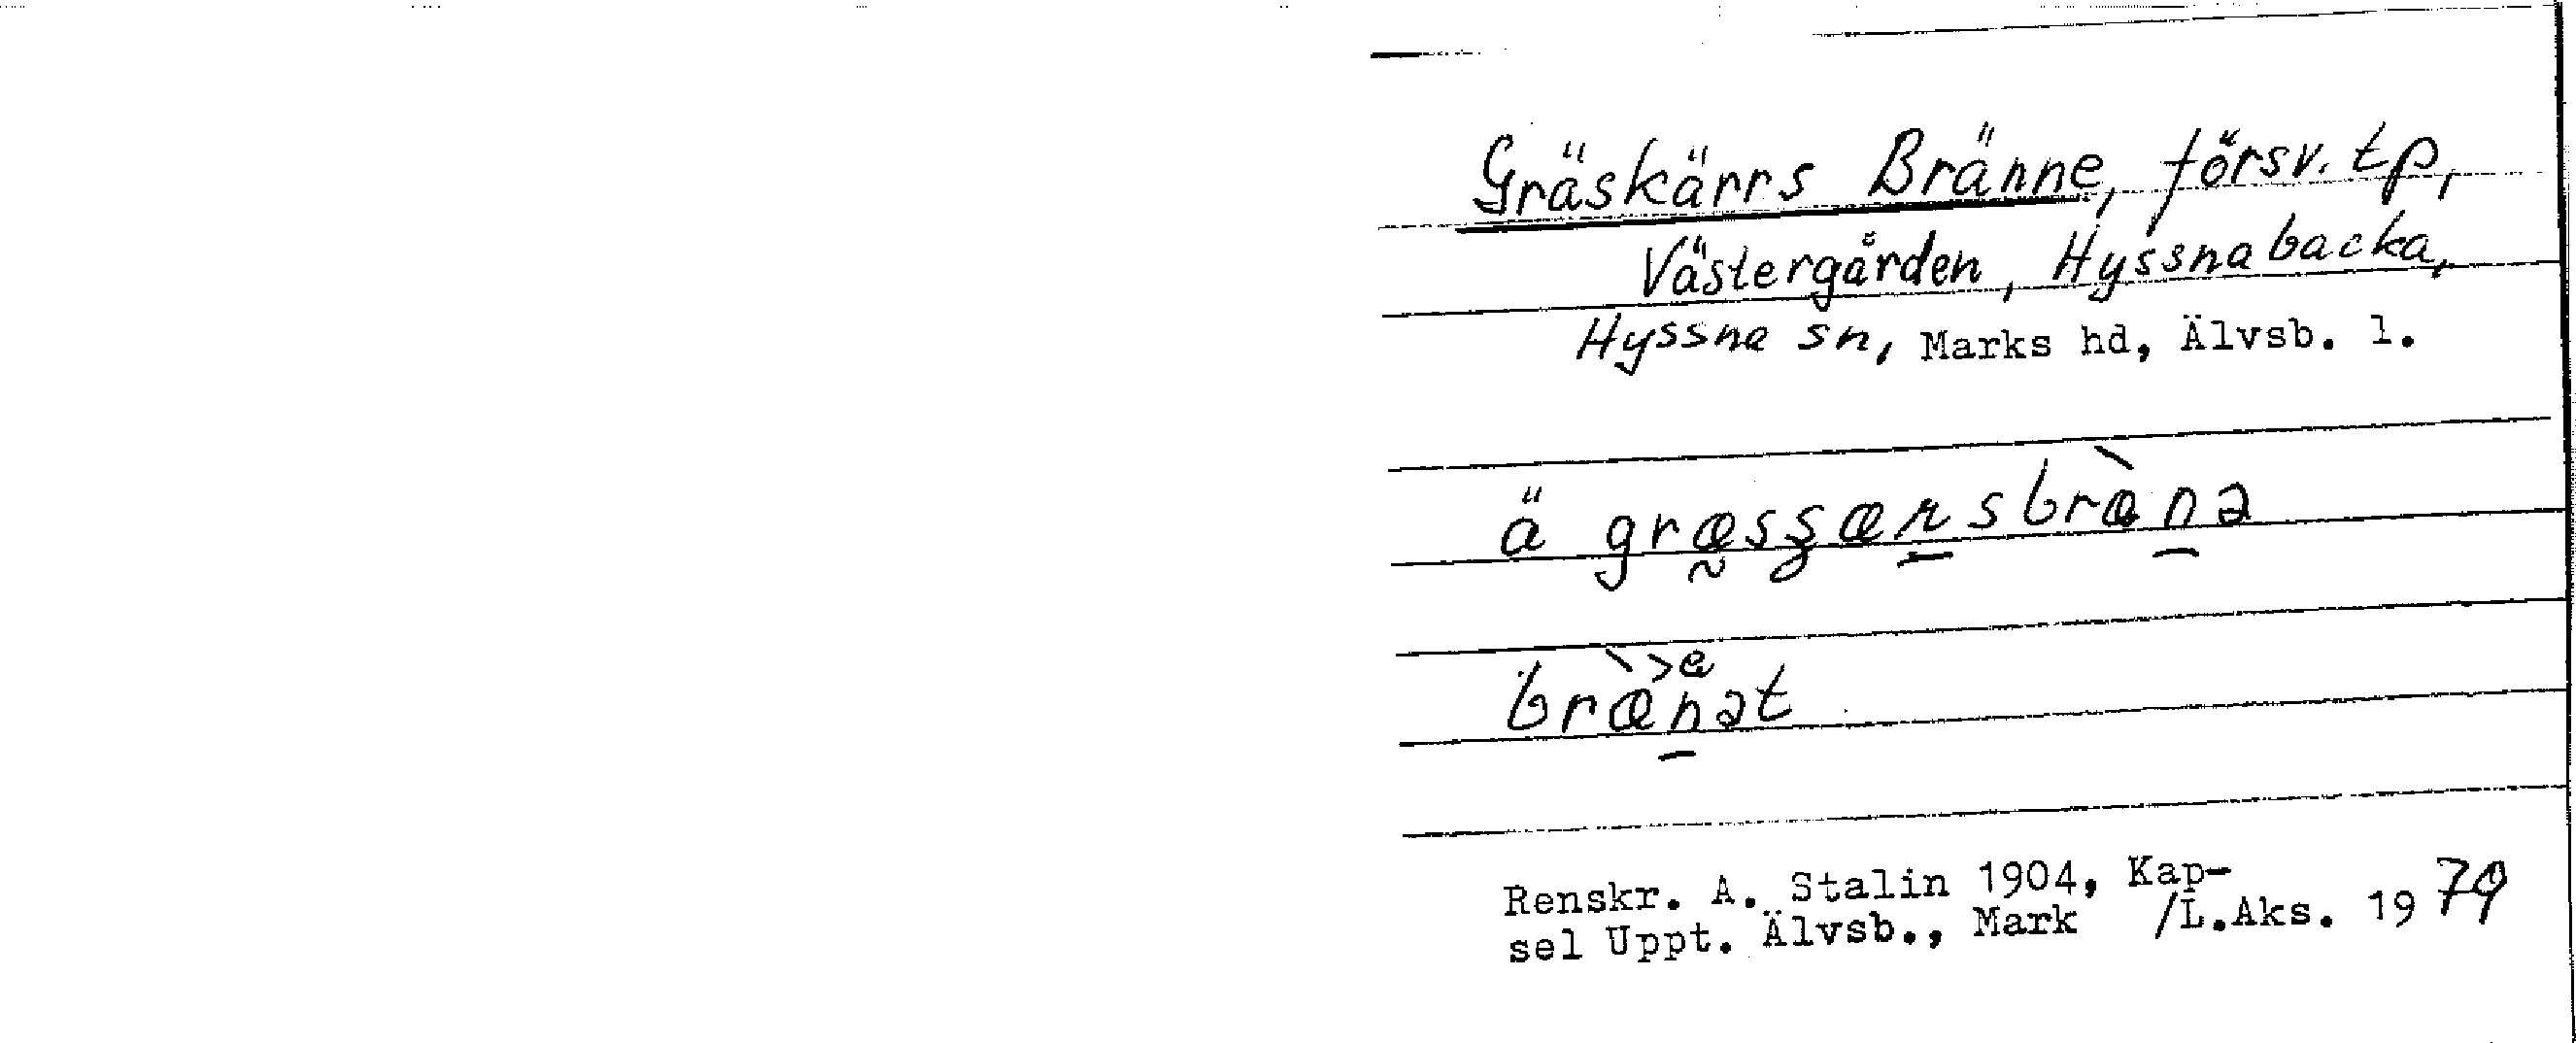 Gräskärrs Bränne, försv. tp,
Västergården, Hyssnabacka,
Hyssna sn, Marks hd, Älvsb. l.
ä græsʂærsbræ̀nə
bræ̀nət
Renskr. A. Stalin 1904, Kap-
sel Uppt. Älvsb., Mark /L.Aks. 1979